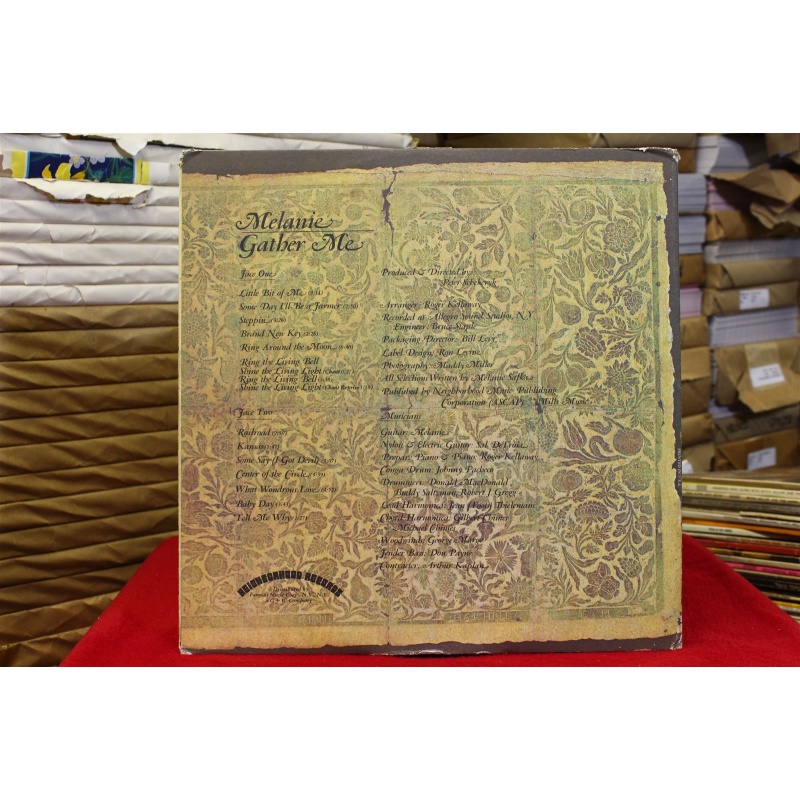 Melanie
Gather Me
Face One
Little Bit of Me
Some Day I'll Be a Farmer
Steppin'
Brand New Key
Ring Around the Moon
Ring the Living Bell
Shine the Living Light
Ring the Living Bell
Shine the Living Light
Face Two
Railroad
Kansas
Some Say (I Got Devil)
Center of the Circle
What Wondrous Love
Baby Day
Tell Me Why
NEIGHBORHOOD RECORDS
Distributed by
Famous Music Corp., N.Y., N.Y.
A G+W Company
Produced & Directed by:
Peter Schekeryk
Arranger: Roger Kellaway
Recorded at: Allegro Sound Studios, N.Y.
Engineer: Bruce Staple
Packaging Director: Bill Levy
Label Design: Ron Levine
Photography: Maddy Miller
All Selections Written by Melanie Safka
Published by Neighborhood Music Publishing
Corporation (ASCAP) Mills Music
Musicians
Guitar: Melanie
Nylon & Electric Guitar: Sal DeTroia
Prepar. Piano & Piano: Roger Kellaway
Conga Drum: Johnny Pacheco
Drummers: Donald MacDonald
Buddy Saltzman, Robert J. Gregg
Lead Harmonica: Jean (Toots) Thielemans
Chord Harmonica: Gilbert Chimes
Michael Chimes
Woodwinds: George Marge
Fender Bass: Don Payne
Contractor: Arthur Kaplan